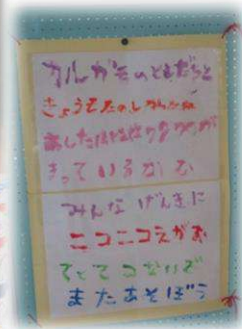 カルガモのともだちと
きょうもたのしかったね
あしたは
まっているかな
みんな げんきに
ニコニコえがお
てとてつないで
またあそぼう